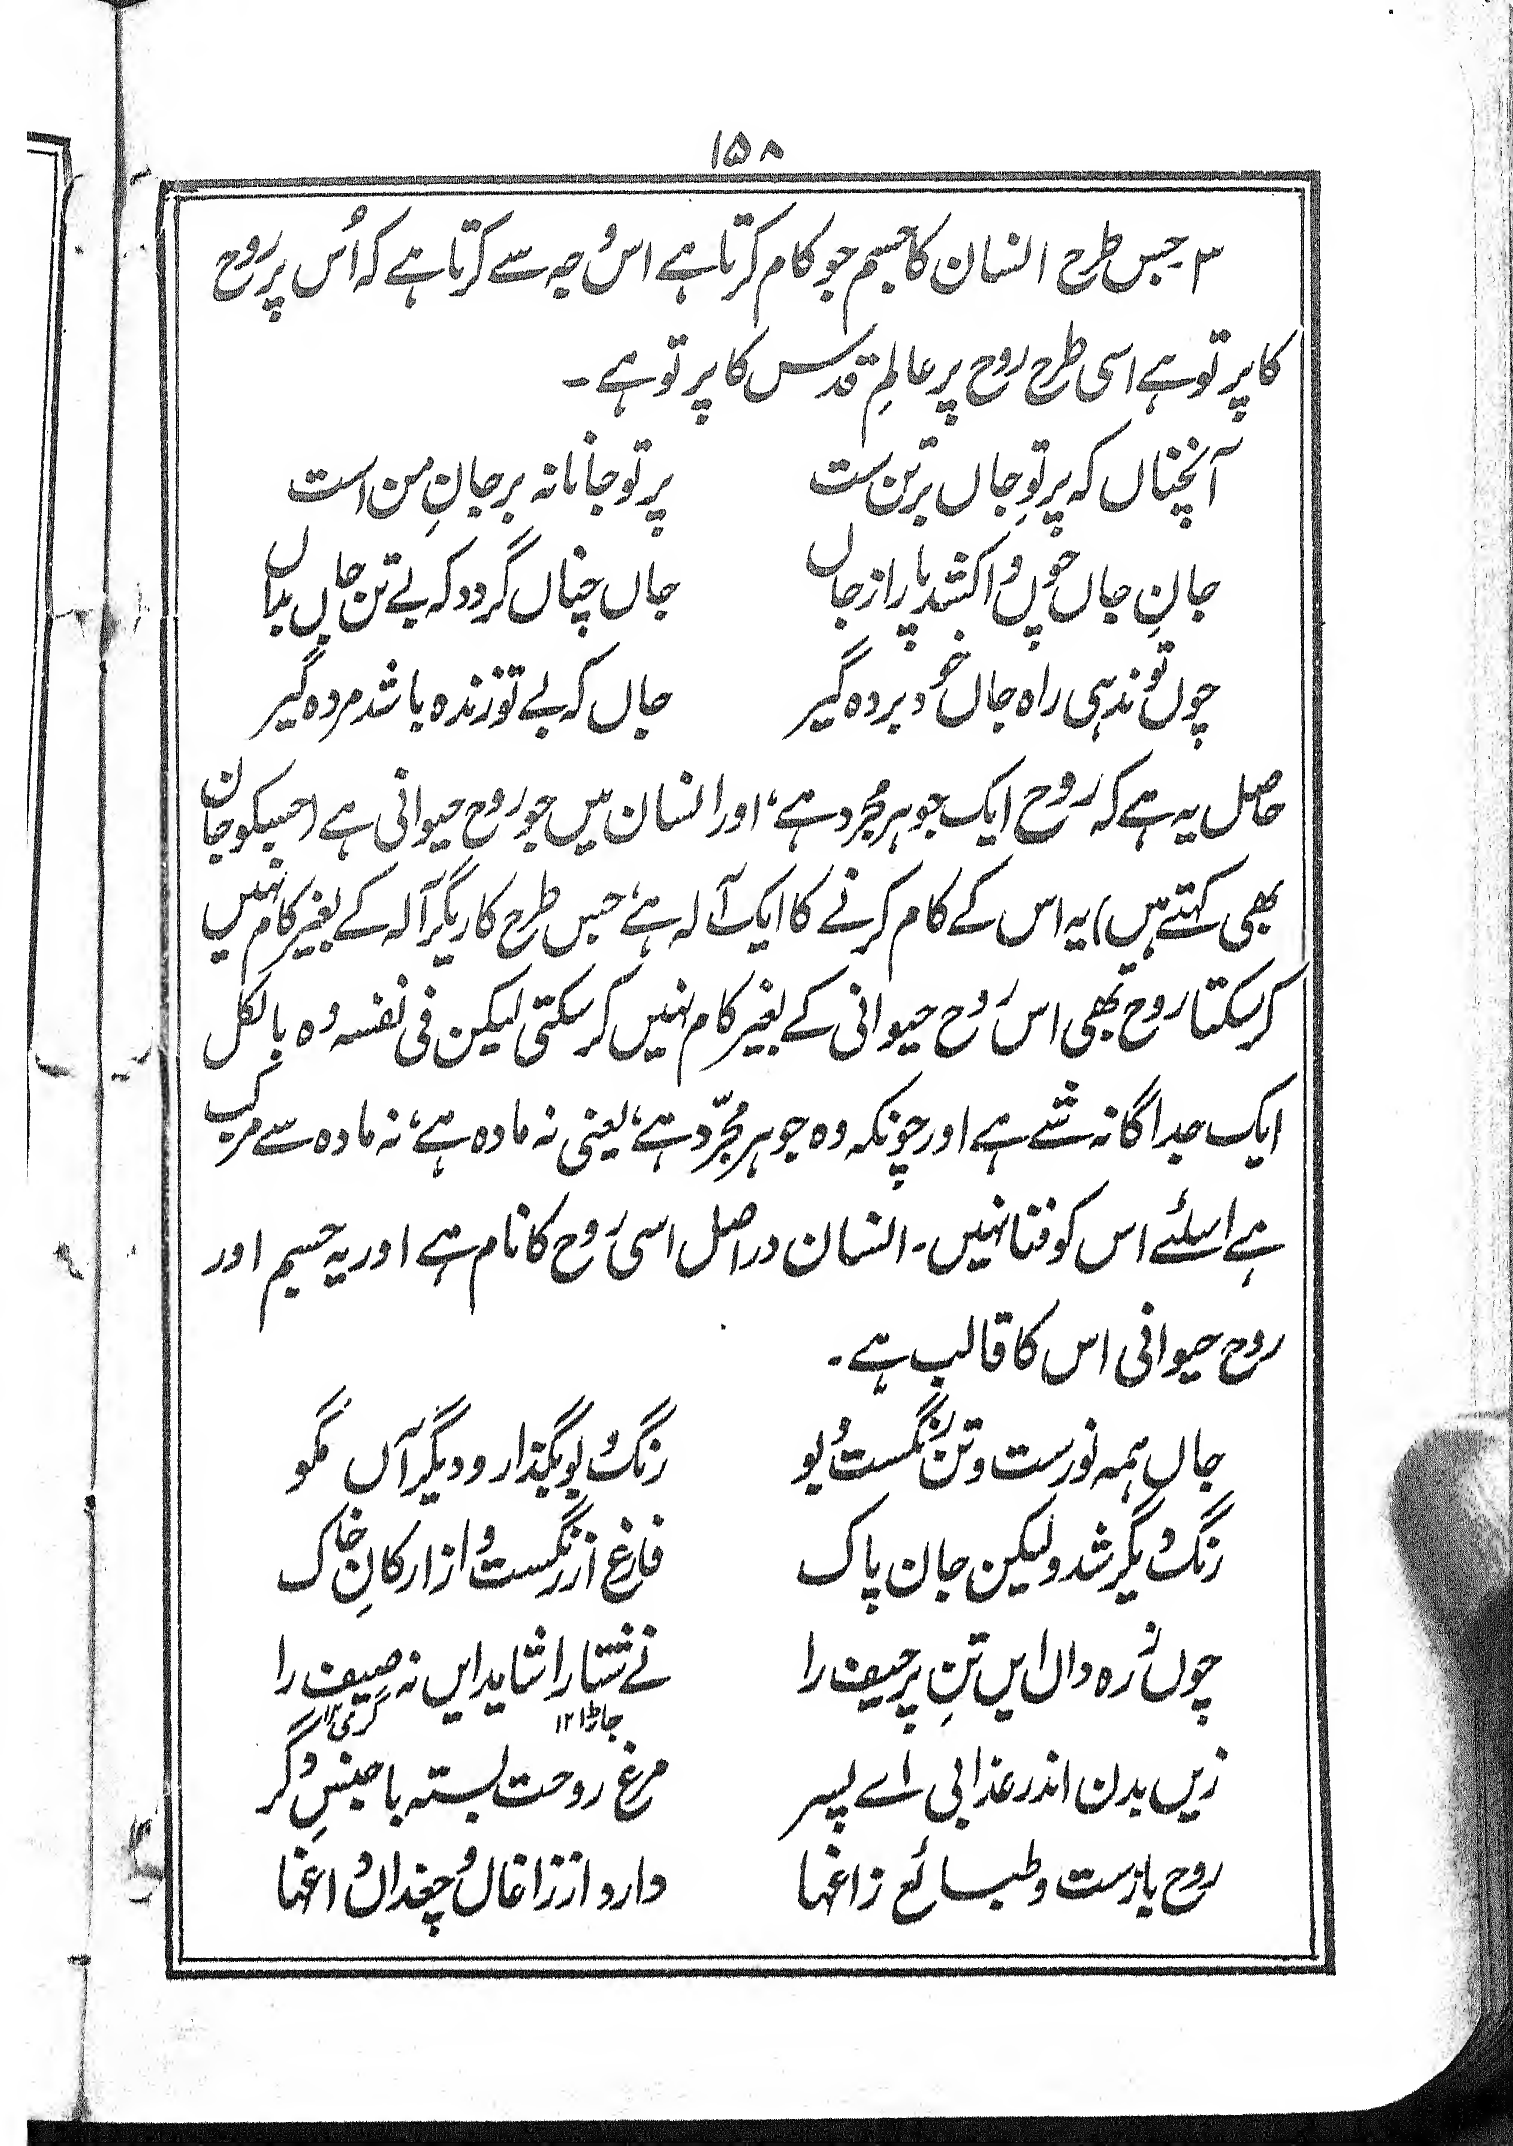 ۱۵۸
۳۔ جس طرح انسان کا جسم جو کام کرتا ہے اس وجہ سے کرتا ہے کہ اُس پر روح
کا پرتو ہے اسی طرح روح پر عالمِ قدس کا پرتو ہے۔
آنچناں کہ پرتوِ جاں بر تن ست پرتو جانانہ بر جانِ من است
جانِ جاں چوں واکشد پا را ز جاں جاں چناں گردد کہ بے تن جاں بداں
چوں تو ندہی راہ جاں خود بردہ گیر جاں کہ بے تو زندہ باشد مردہ گیر
حاصل یہ ہے کہ روح ایک جوہر مجرد ہے، اور انسان میں جو روحِ حیوانی ہے (جسکو جان
بھی کہتے ہیں) یہ اس کے کام کرنے کا ایک آلہ ہے، جس طرح کاریگر آلہ کے بغیر کام نہیں
کر سکتا روح بھی اس روح حیوانی کے بغیر کام نہیں کر سکتی لیکن فی نفسہ وہ بالکل
ایک جداگانہ شے ہے اور چونکہ وہ جوہر مجرّد ہے، یعنی نہ مادہ ہے، نہ مادہ سے مرکب
ہے اسلئے اس کو فنا نہیں۔ انسان دراصل اسی روح کا نام ہے اور یہ جسم اور
روح حیوانی اس کا قالب ہے۔
جاں ہمہ نورست و تن رنگست و بو رنگ و بو بگذار و دیگر آں مگو
رنگ دیگر شد ولیکن جان پاک فارغ از رنگست و از ارکانِ خاک
چوں زرہ داں ایں تنِ پر حیف را نے شتا را شاید ایں نہ صیف را
جاڑا ۱۲ گرمی ۱۲
زیں بدن اندر عذابی اے پسر مرغ روحت بستہ با جنسِ دگر
روح بازست و طبائع زاغہا دارد از زاغاں و چغداں داغہا